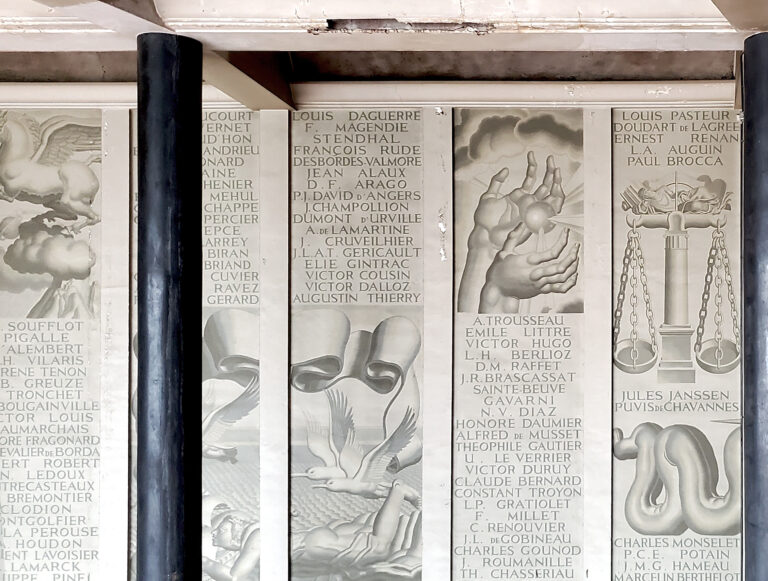 SOUFFLOT
PIGALLE
'ALEMBERT
H VILARIS
RENE TENON
B. GREUZE
TRONCHET
BOUGAINVILLE
CTOR LOUIS
AUMARCHAIS
ORE FRAGONARD
EVALIER DE BORDA
ERT ROBERT
N. LEDOUX
NTRECASTEAUX
BREMONTIER
CLODION
ONTGOLFIER
LA PEROUSE
A. HOUDON
ENT LAVOISIER
LAMARCK
IPPE PINEL
UCOURT
ERNET
UD'HON
ANDRIEU
ONARD
AINE
HENIER
MEHUL
CHAPPE
PERCIER
EPCE
ARREY
BIRAN
BRIAND
CUVIER
RAVEZ
GERARD
LOUIS DAGUERRE
F. MAGENDIE
STENDHAL
FRANÇOIS RUDE
DESBORDES-VALMORE
JEAN ALAUX
D.F. ARAGO
P.J. DAVID D'ANGERS
J. CHAMPOLLION
DUMONT D'URVILLE
A. DE LAMARTINE
J. CRUVEILHIER
J.L.A.T. GERICAULT
ELIE GINTRAC
VICTOR COUSIN
VICTOR DALLOZ
AUGUSTIN THIERRY
A. TROUSSEAU
EMILE LITTRE
VICTOR HUGO
L.H. BERLIOZ
D.M. RAFFET
J.R. BRASCASSAT
SAINTE-BEUVE
GAVARNI
N.V. DIAZ
HONORE DAUMIER
ALFRED DE MUSSET
THEOPHILE GAUTIER
U. LE VERRIER
VICTOR DURUY
CLAUDE BERNARD
CONSTANT TROYON
L.P. GRATIOLET
F. MILLET
C. RENOUVIER
J.L. DE GOBINEAU
CHARLES GOUNOD
J. ROUMANILLE
TH. CHASSERIAU
LOUIS PASTEUR
DOUDART DE LAGREE
ERNEST RENAN
L.A. AUGUIN
PAUL BROCCA
JULES JANSSEN
PUVIS DE CHAVANNES
CHARLES MONSELET
P.C.E. POTAIN
J.M.G. HAMEAU